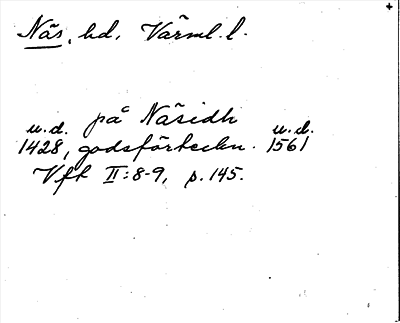 Näs, hd, Värml. l.
på Näsidh
u.d. u.d.
1428, godsförteckn. 1561
Vfk II:8-9, p. 145.